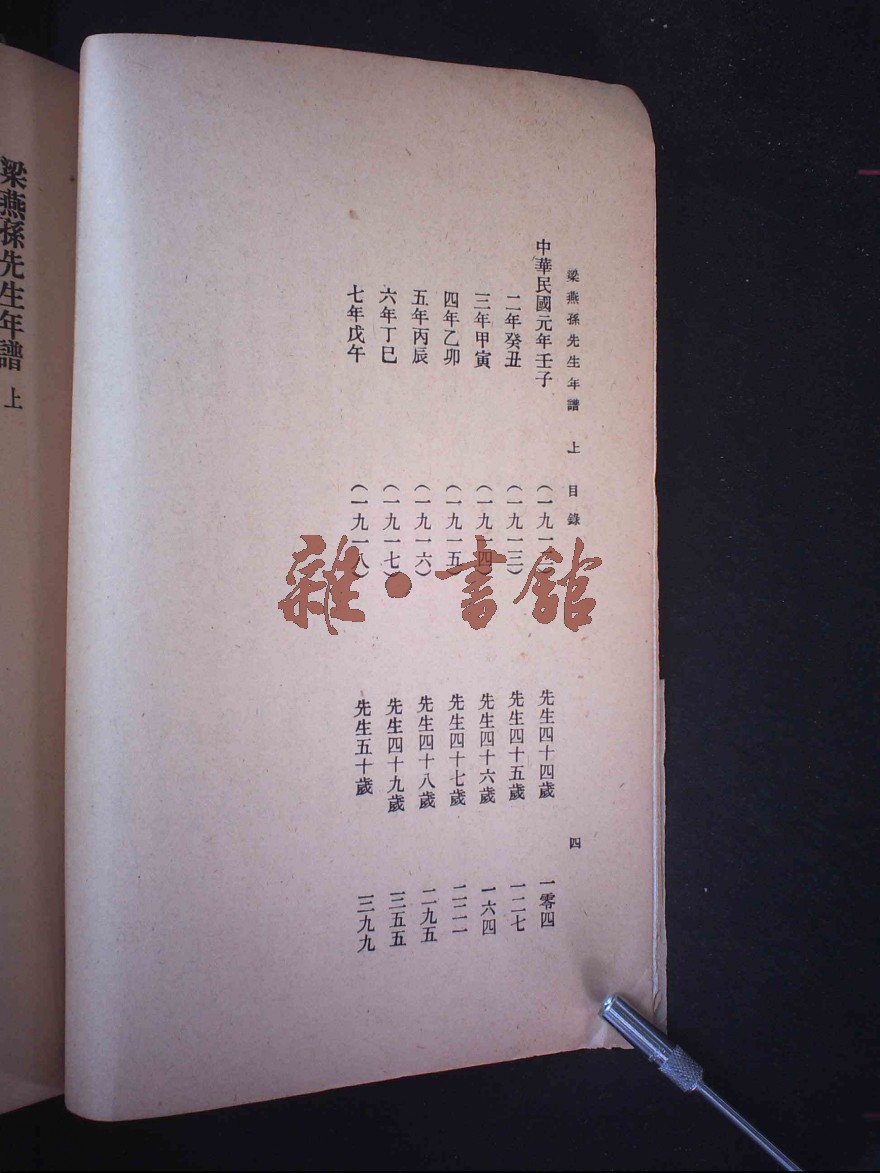 梁燕孫先生年譜 上 目錄 四
中華民國元年壬子 (一九一二) 先生四十四歲 一零四
二年癸丑 (一九一三) 先生四十五歲 一二七
三年甲寅 (一九一四) 先生四十六歲 一六四
四年乙卯 (一九一五) 先生四十七歲 二二一
五年丙辰 (一九一六) 先生四十八歲 二九五
六年丁巳 (一九一七) 先生四十九歲 三五五
七年戊午 (一九一八) 先生五十歲 三九九
梁燕孫先生年譜 上
雜·書館